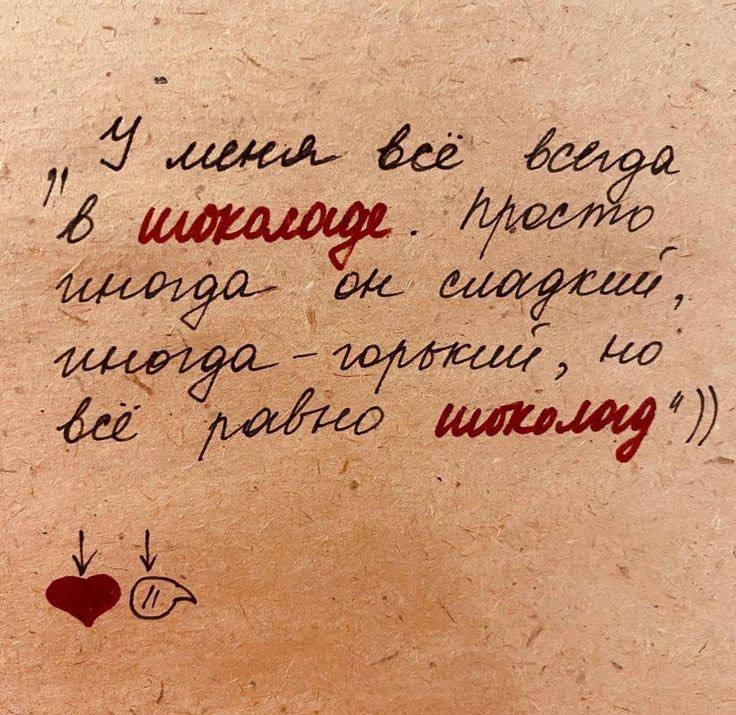 „У меня всё всегда
в шоколаде. Просто
иногда он сладкий,
иногда – горький, но
всё равно шоколад“))